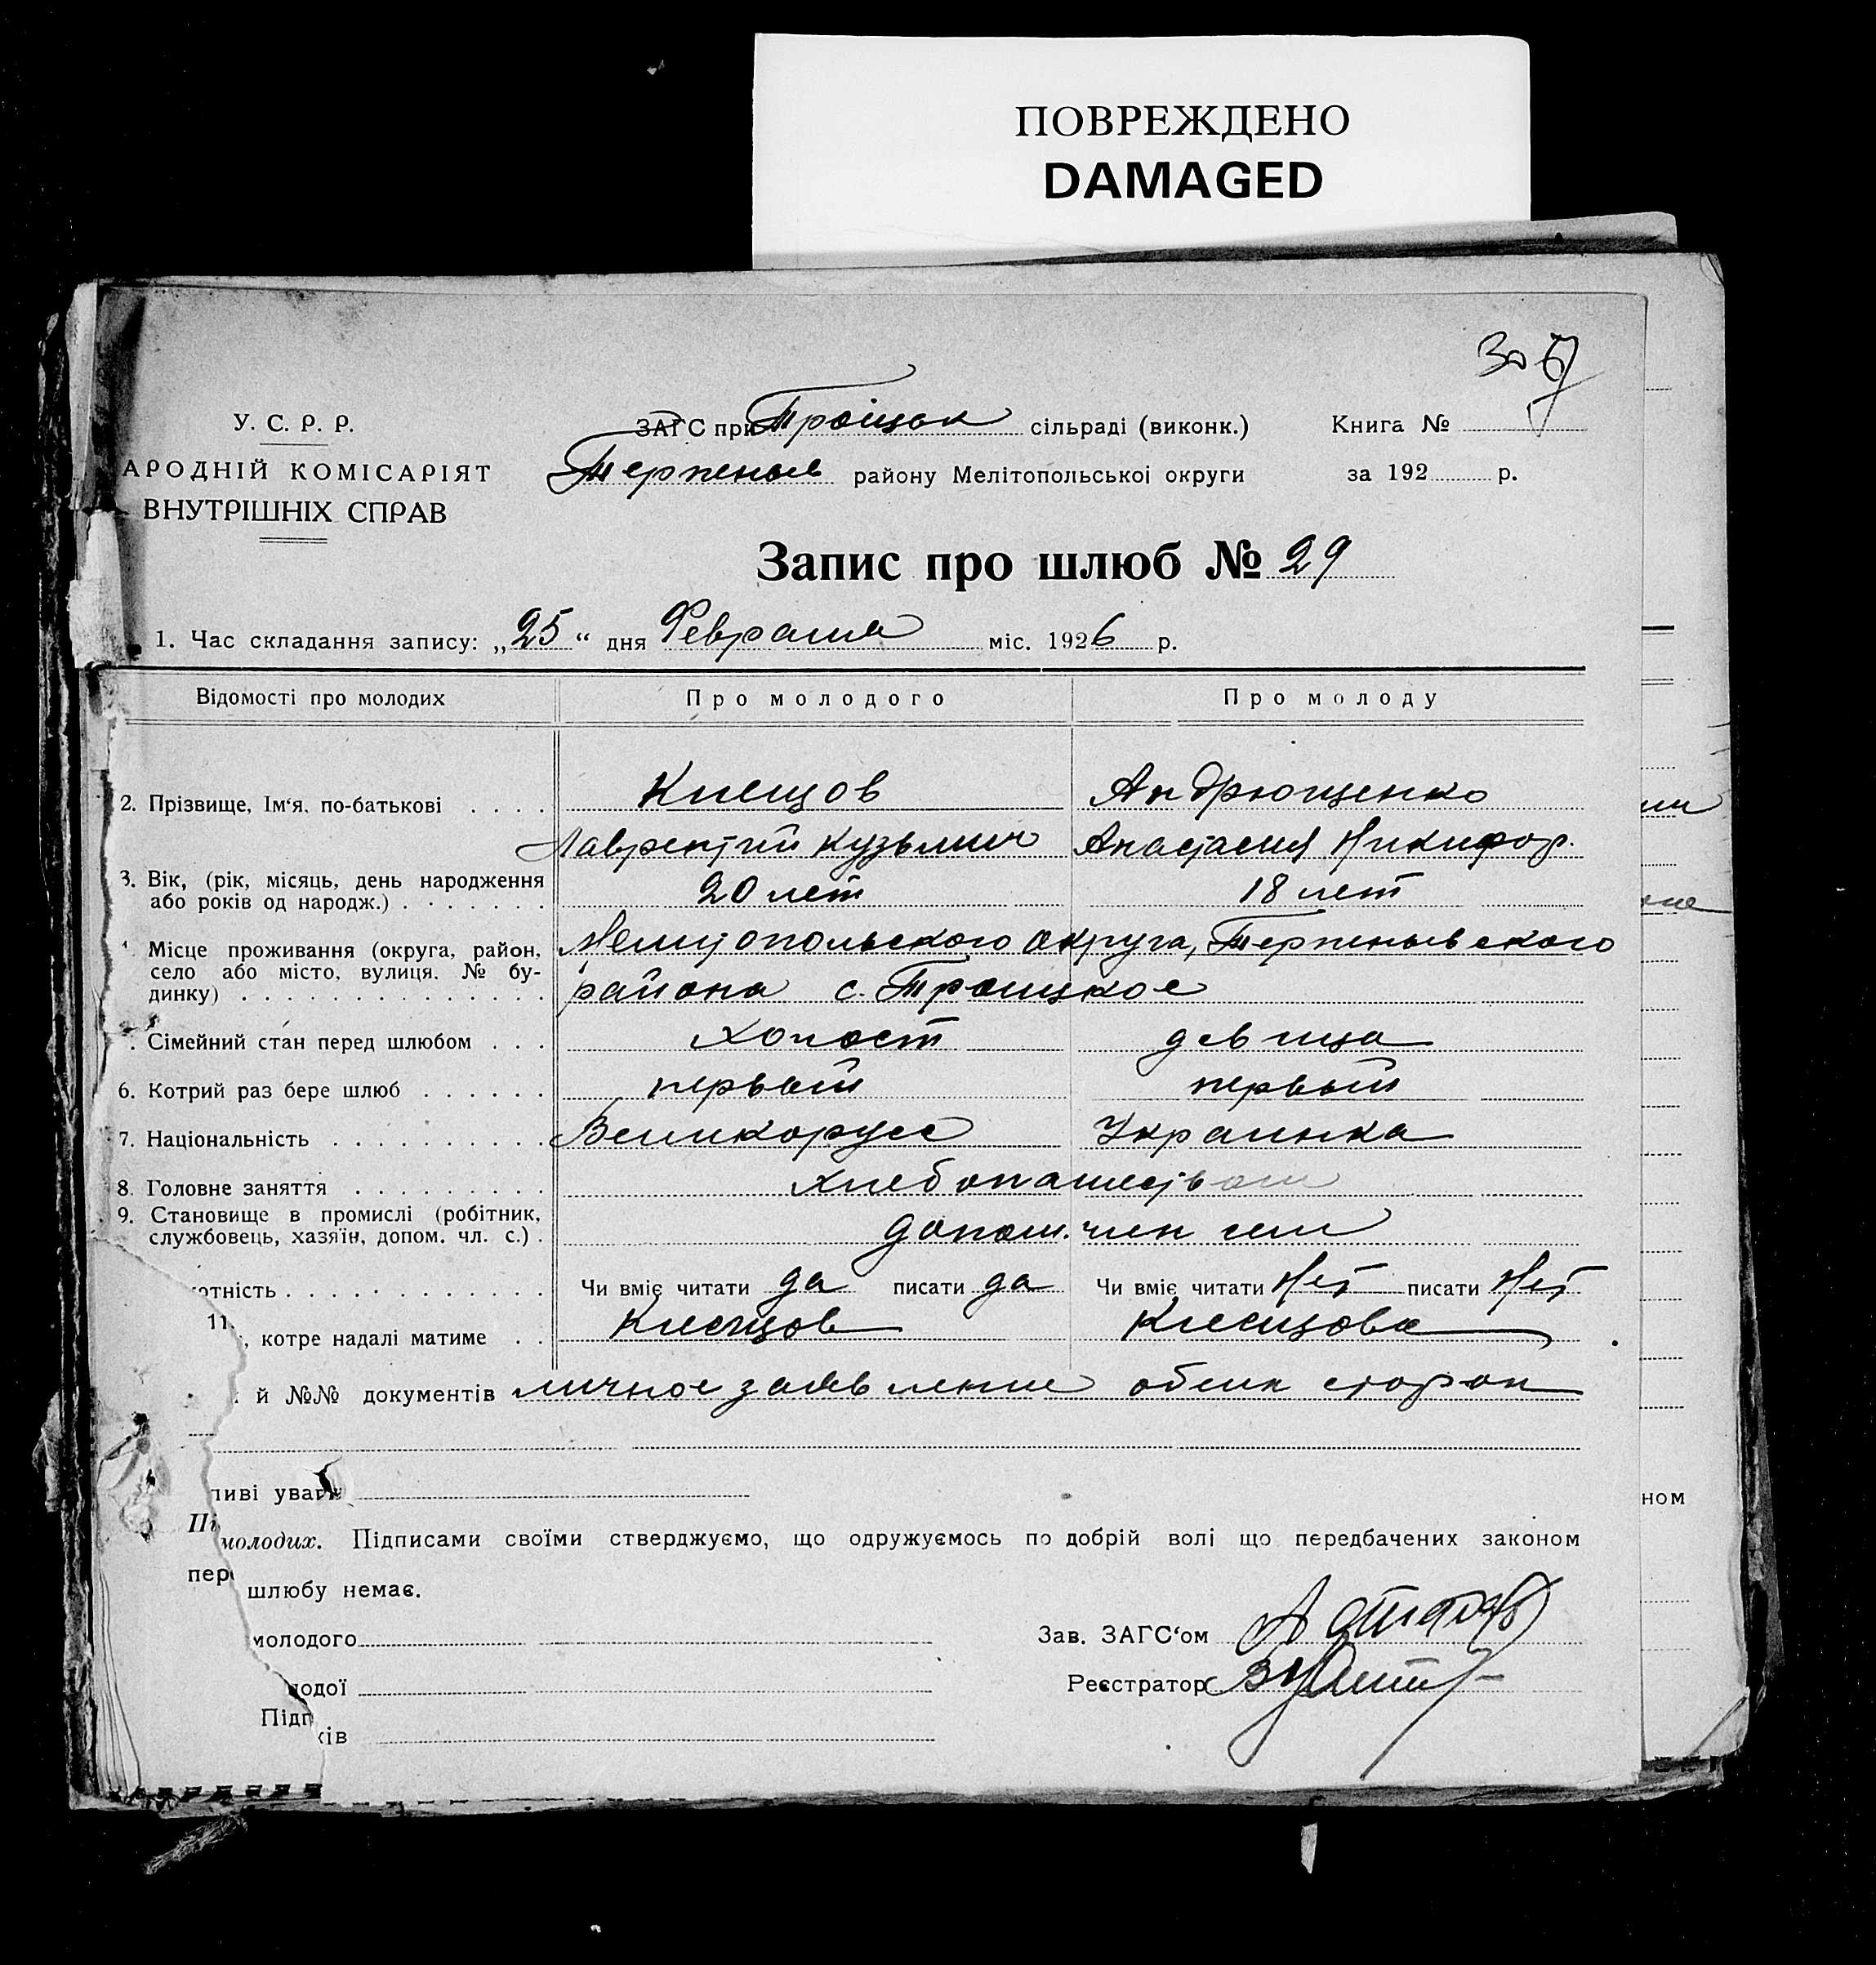 ПОВРЕЖДЕНО
DAMAGED
У. С. Р. Р.
АРОДНІЙ КОМІСАРІЯТ
ВНУТРІШНІХ СПРАВ
ЗАГС при Троіцьк сільраді (виконк.)
Терпеньев району Мелітопольської округи
Книга №
за 192 р.
Запис про шлюб № 29
1. Час складання запису: „25“ дня Февраля міс. 1926 р.
Відомості про молодих Про молодого Про молоду
2. Прізвище, Ім‘я, по-батькові Клещов Андрющенко
Лаврентий Кузьмич Анастасия Никифор.
3. Вік, (рік, місяць, день народження
або років од народж.) 20 лет 18 лет
Місце проживання (округа, район, Мелитопольского округа, Терпеньевского
село або місто, вулиця, № бу-
динку) района с. Троицкое
Сімейний стан перед шлюбом холост девица
6. Котрий раз бере шлюб первый первый
7. Національність Великорусс Украинка
8. Головне заняття хлебопашеством
9. Становище в промислі (робітник,
службовець, хазяїн, допом. чл. с.) допом. член сем
отність Чи вміє читати да писати да Чи вміє читати Нет писати Нет
11.
, котре надалі матиме Клещов Клещова
й №№ документів личное заявление обеих сторон
ливі уваги
Пі молодих. Підписами своїми стверджуємо, що одружуємось по добрій волі що передбачених законом
пер шлюбу немає.
молодого Зав. ЗАГС‘ом
лодої Реєстратор
Підп
ків
ном